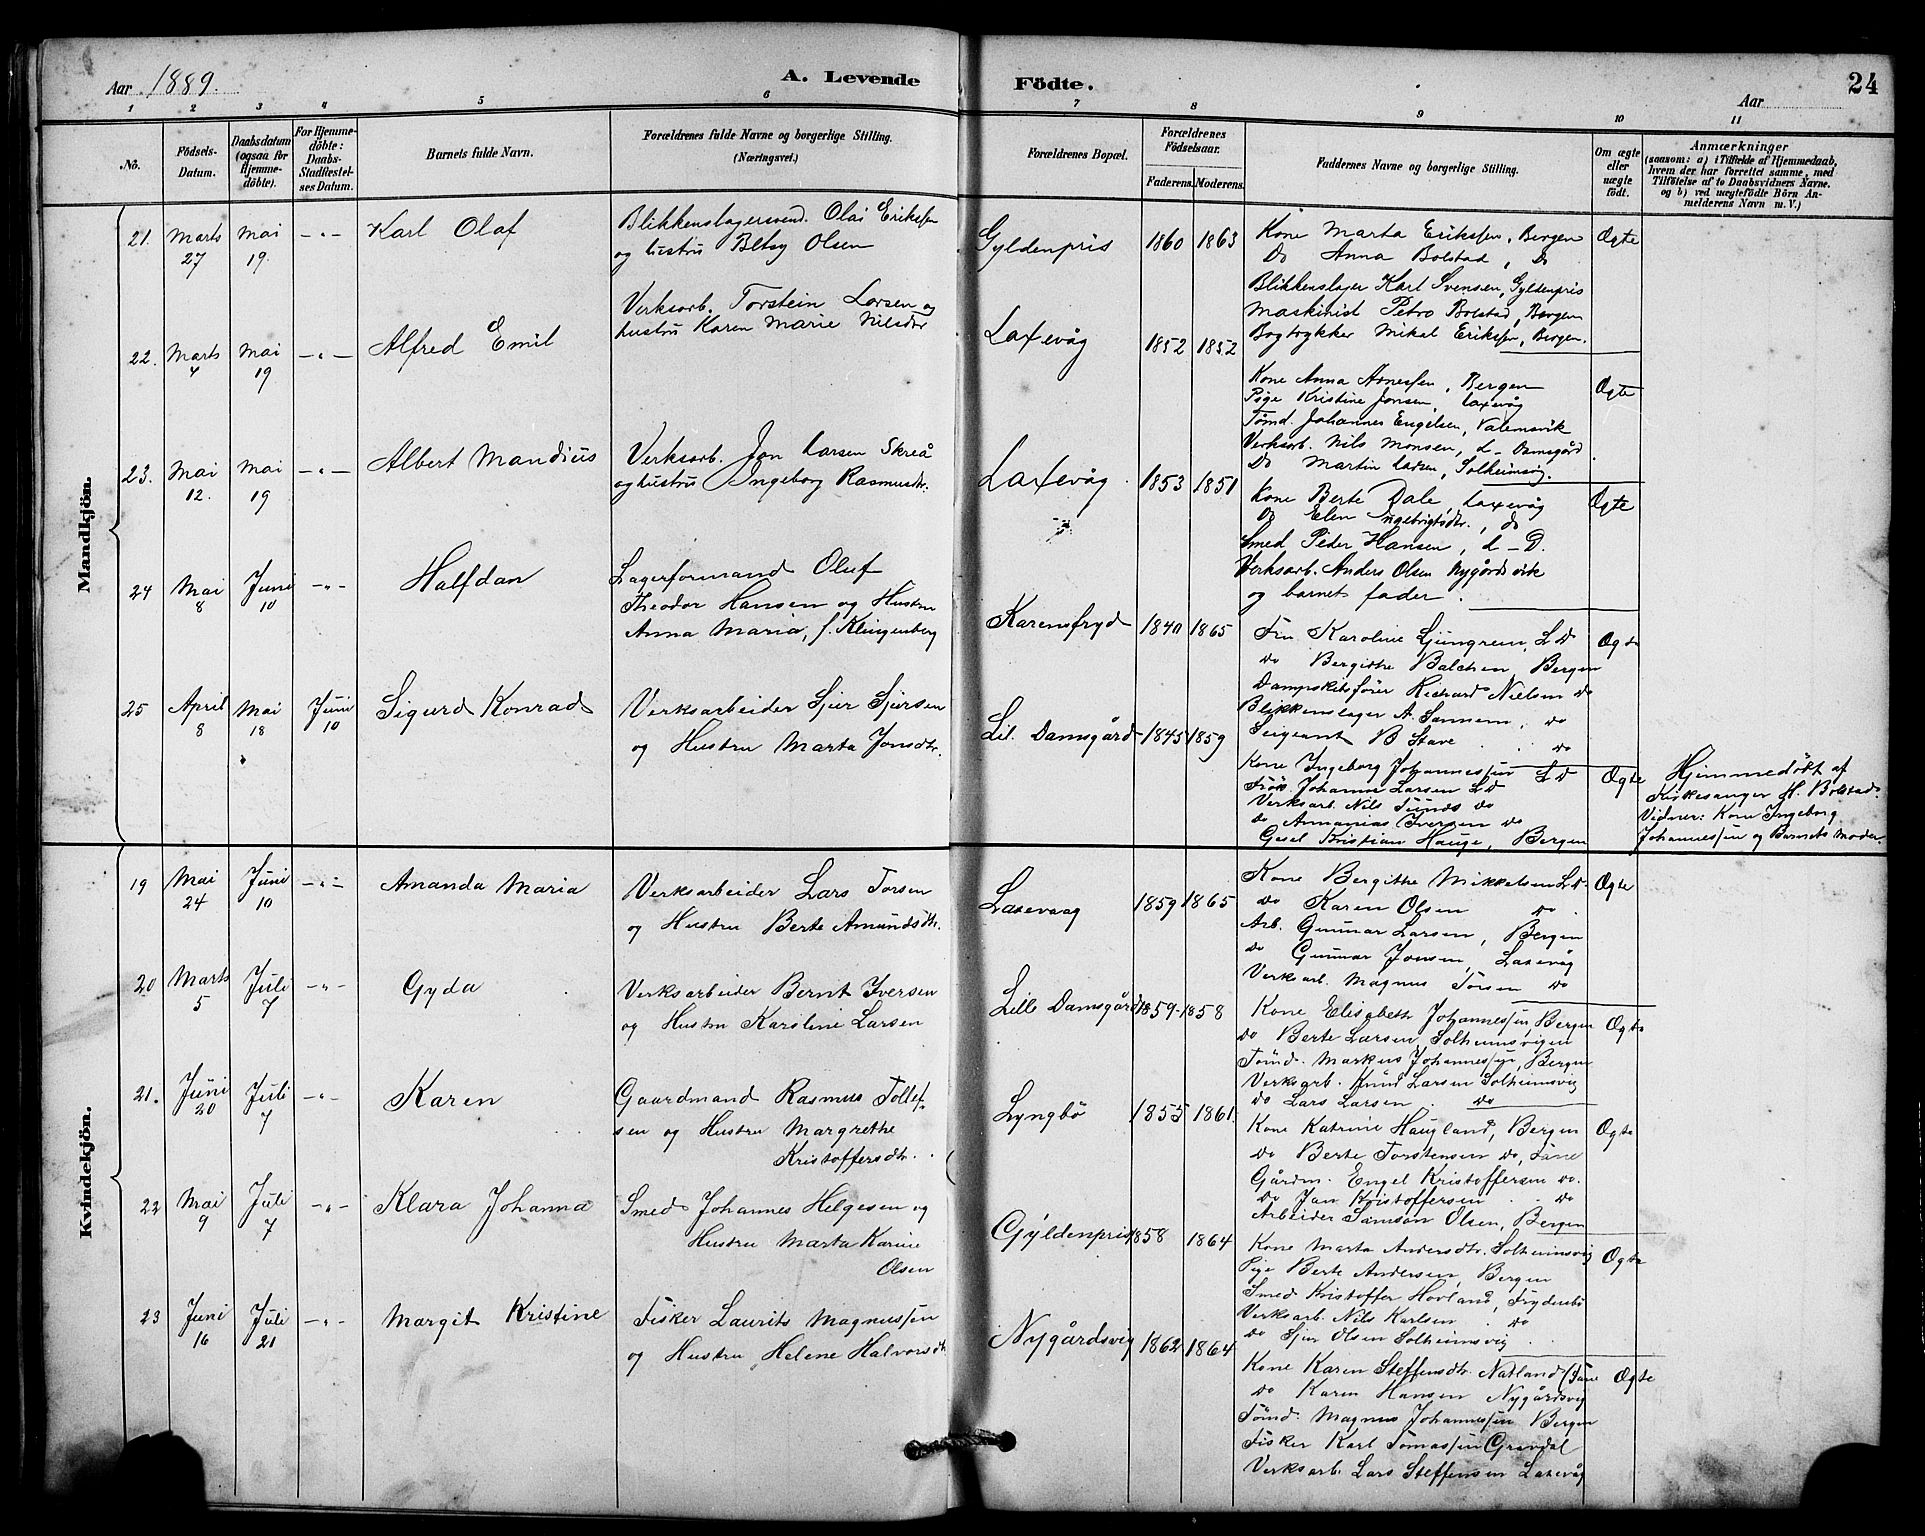 Aar 1889.
A. Levende
Födte.
Aar
24
1 2 3 4 5 6 7 8 9 10 11
No.
Födsels-Datum.
Daabsdatum (ogsaa for Hjemme-döbte).
For Hjemme-döbte: Daabs-Stadfæstel-ses Datum.
Barnets fulde Navn.
Forældrenes fulde Navne og borgerlige Stilling. (Næringsvei.)
Forældrenes Bopæl.
Forældrenes Födselsaar.
Faderens. Moderens.
Faddernes Navne og borgerlige Stilling.
Om ægte eller uægte födt.
Anmærkninger
(saasom: a) i Tilfælde af Hjemmedaab, hvem der har forrettet samme, med Tilföielse af to Daabsvidners Navne. og b) ved uægtefödte Börn An-melderens Navn m. V.)
Mandkjön.
21. Marts 27 Mai 19. -"- Karl Olaf
Blikkenslagersvend. Olai Erikssen
og hustru Betsy Olsen
Gyldenpris 1860 1863
Kone Marta Erikssen, Bergen
Do Anna Bolstad, Do
Blikkenslager Karl Svensen, Gyldenpris
Maskinist Petro Bolstad, Bergen
Bogtrykker Mikal Erikssen, Bergen.
Ægte
22. Marts 4 Mai 19 -"- Alfred Emil
Verksarb. Torstein Larsen og
hustru Karen Marie Nilsdtr
Laxevåg 1852 1852
Kone Anna Arnessen, Bergen
Pige Kristine Jonsen, Laxevåg
Tømd. Johannes Engelsen,
Verksarb. Nils Monsen, L- Damsgård
Do Martin Larsen, Solheimsvig.
Ægte
23. Mai 12. Mai 19 -"- Albert Mandius
Verksarb. Jon Larsen Skreå
og hustru Ingeborg Rasmusdtr.
Laxevåg. 1853 1851
Kone Berte Dale, Laxevåg
Do Elen Ingebrigtsdtr., do
Smed Peder Hansen, L-D.
Verksarb. Anders Olsen Nygårdsvik
og barnets fader.
Ægte
24 Mai 8 Juni 10 -"- Halfdan
Lagerformand Oluf
Theodor Hansen og Hustru
Anna Maria, f. Klingenberg
Karensfryd 1840 1865
Fru Karoline Ljungren, L D
do Bergithe Balchen, Bergen
Dampskibsfører Richard Nielsen do
Blikkenslager A. Sannem, do
Sergeant B Stave do
Ægte
25 April 8 Mai 18 Juni 10 Sigurd Konrad
Verksarbeider Sjur Sjursen
og Hustru Marta Jonsdtr.
Lil. Damsgård 1845 1859
Kone Ingeborg Johannessen L D
Frøk. Johanne Larsen L D
Verksarb. Nils Tunds do
do Annanias Iversen do
Gesel Kristian Hauge, Bergen
Ægte
Hjemmedøbt af
Kirkesanger H. Bolstad.
Vidner: Kone Ingeborg
Johannessen og Barnets Moder.
Kvindekjön.
19 Mai 24 Juni 10 -"- Amanda Maria
Verksarbeider Lars Torsen
og Hustru Berte Amundsdtr.
Laxevaag 1859 1865
Kone Bergithe Mikkelsen L D.
do Karen Olsen do.
Arb. Gunnar Larsen, Bergen
do Gunnar Jonsen, Laxevåg
Verksarb. Magnus Torsen do
Ægte
20 Marts 5 Juli 7 -"- Gyda
Verksarbeider Bernt Iversen
og Hustru Karoline Larsen
Lille Damsgård 1859- 1858
Kone Elisabeth Johannessen, Bergen
do Berte Larsen, Solheimsvigen
Tømd. Markus Johannessen, Bergen
Verksarb. Knud Larsen Solheimsvig
do Lars Larsen. do
Ægte
21. Juni 20 Juli 7 -"- Karen
Gaardmand Rasmus Tollef-
sen og Hustru Margrethe
Kristoffersdtr.
Lyngbö 1855 1861.
Kone Katrine Haugland, Bergen
do Berte Torstensen do, Fane
Gårdm. Engel Kristoffersen do.
do Jan Kristoffersen do
Arbeider Samson Olsen, Bergen
Ægte
22 Mai 9 Juli 7 -"- Klara Johanna
Smed Johannes Helgesen og
Hustru Marta Karine
Olsen
Gyldenpris 1858 1864
Kone Marta Andersdtr. Solheimsvig
Pige Berte Andersen, Bergen
Smed Kristoffer Hovland, Frydenbö
Verksarb. Nils Karlsen. do
do Sjur Olsen Solheimsvig
Ægte
23 Juni 16 Juli 21 -"- Margit Kristine
Fisker Laurits Magnussen
og Hustru Helene Halvorsdtr.
Nygårdsvig 1862 1864
Kone Karen Steffensdtr. Natland (Fane
do Karen Hansen Nygårdsvig
Tømd. Magnus Johannessen Bergen
Fisker Karl Tomassen Gravdal
Verksarb. Lars Steffensen Laxevåg
Ægte